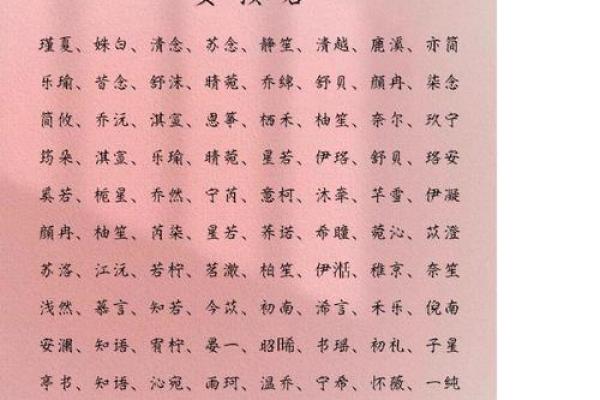 瑾夏、姝白、清念、苏念、静笙、清越、鹿溪、亦简
乐瑜、昔念、舒沫、晴菀、乔绵、舒贝、颜冉、柒念
简攸、乔沅、淇萱、恩筝、栖禾、柚笙、奈尔、玖宁
筠朵、淇萱、乐瑜、晴菀、星若、伊珞、舒贝、珞安
奚若、栀星、乔然、宁芮、意柯、沐牵、芊雪、伊凝
颜冉、柚笙、芮柒、星若、荞堷、希瞳、菀沁、苡澄
苏洛、江沅、若柠、茗澈、柏笙、伊湉、稚京、奈笙
浅然、慕言、知若、今苡、初南、浠言、禾乐、倪南
安澜、知语、宥柠、晏一、昭晞、书瑶、初礼、子星
亭书、知语、沁宛、雨珂、温乔、宁希、怀薇、一纯